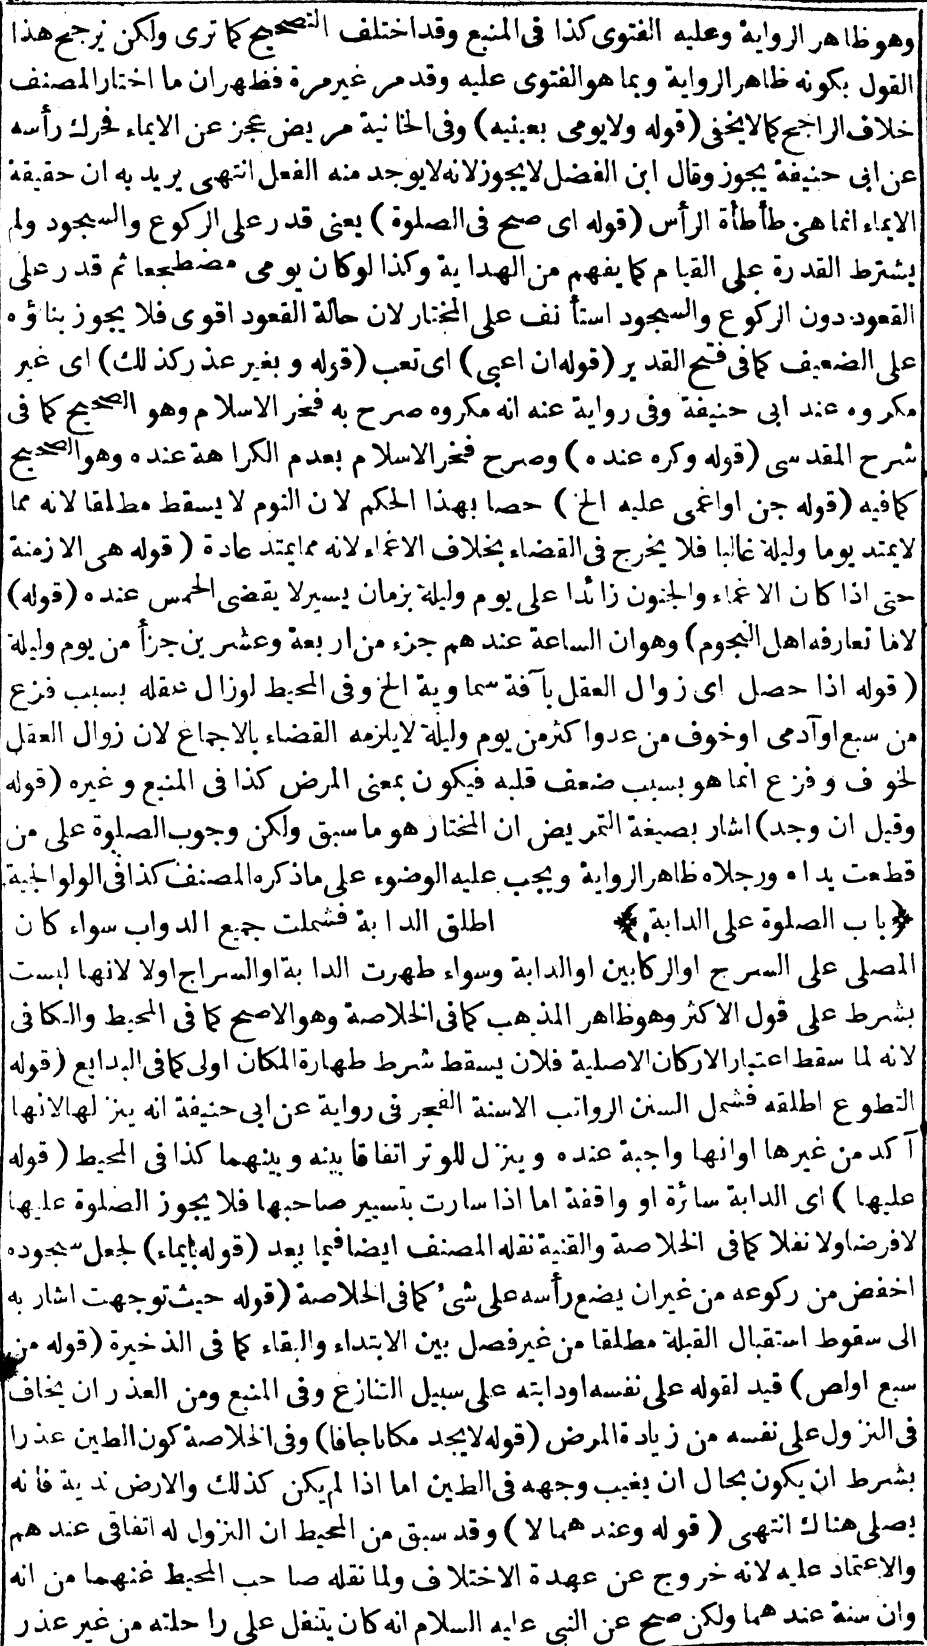 وهو ظاهر الرواية وعليه الفتوى كذا فى المنبع وقد اختلف التصحيح كما ترى ولكن يرجح هذا
القول بكونه ظاهر الرواية وبما هو الفتوى عليه وقد مر غير مرة فظهر ان ما اختار المصنف
خلاف الراجح كما لا يخفى (قوله ولا يومى بعينيه) وفى الخانية مريض عجز عن الايماء فحرك رأسه
عن ابى حنيفة يجوز وقال ابن الفضل لا يجوز لانه لا يوجد منه الفعل انتهى يريد به ان حقيقة
الايماء انما هى طأطأة الرأس (قوله اى صح فى الصلوة) يعنى قدر على الركوع والسجود ولم
يشترط القدرة على القيام كما يفهم من الهداية وكذا لو كان يومى مضطجعا ثم قدر على
القعود دون الركوع والسجود استأنف على المختار لان حالة القعود اقوى فلا يجوز بناؤه
على الضعيف كما فى فتح القدير (قوله ان اعيى) اى تعب (قوله و بغير عذر كذلك) اى غير
مكروه عند ابى حنيفة وفى رواية عنه انه مكروه صرح به فخر الاسلام وهو الصحيح كما فى
شرح المقدسى (قوله وكره عنده) وصرح فخر الاسلام بعدم الكراهة عنده وهو الصحيح
كما فيه (قوله جن او اغمى عليه الخ) خصا بهذا الحكم لان النوم لا يسقط مطلقا لانه مما
لا يمتد يوما وليلة غالبا فلا يخرج فى القضاء بخلاف الاغماء لانه مما يمتد عادة (قوله هى الازمنة
حتى اذا كان الاغماء والجنون زائدا على يوم وليلة بزمان يسير لا يقضى الخمس عنده (قوله)
لاما تعارفه اهل النجوم) وهو ان الساعة عندهم جزء من اربعة وعشرين جزأ من يوم وليلة
(قوله اذا حصل اى زوال العقل بآفة سماوية الخ وفى المحيط لو زال عقله بسبب فزع
من سبع اوآدمى اوخوف من عدوا كثر من يوم وليلة لا يلزمه القضاء بالاجماع لان زوال العقل
لخوف و فزع انما هو بسبب ضعف قلبه فيكون بمعنى المرض كذا فى المنبع وغيره (قوله
وقيل ان وجد) اشار بصيغة التمريض ان المختار هو ما سبق ولكن وجوب الصلوة على من
قطعت يداه ورجلاه ظاهر الرواية ويجب عليه الوضوء على ما ذكره المصنف كذا فى الولوالجية
﴿باب الصلوة على الدابة﴾ اطلق الدابة فشملت جميع الدواب سواء كان
المصلى على السرج او الركابين او الدابة وسواء طهرت الدابة او السراج اولا لانها ليست
بشرط على قول الاكثر وهو ظاهر المذهب كما فى الخلاصة وهو الاصح كما فى المحيط والكافى
لانه لما سقط اعتبار الاركان الاصلية فلان يسقط شرط طهارة المكان اولى كما فى البدايع (قوله
التطوع اطلقه فشمل السنن الرواتب الاسنة الفجر فى رواية عن ابى حنيفة انه ينزلها لانها
آكد من غيرها او انها واجبة عنده وينزل للوتر اتفاقا بينه وبينهما كذا فى المحيط (قوله
عليها) اى الدابة سائرة او واقفة اما اذا سارت بتسيير صاحبها فلا يجوز الصلوة عليها
لا فرضا ولا نفلا كما فى الخلاصة والقنية نقله المصنف ايضا فيما بعد (قوله بايماء) لجعل سجوده
اخفض من ركوعه من غير ان يضع رأسه على شئ كما فى الخلاصة (قوله حيث توجهت اشار به
الى سقوط استقبال القبلة مطلقا من غير فصل بين الابتداء والبقاء كما فى الذخيرة (قوله من
سبع او لص) قيد لقوله على نفسه او دابته على سبيل التنازع وفى المنبع ومن العذر ان يخاف
فى النزول على نفسه من زيادة المرض (قوله لا يجد مكانا جافا) وفى الخلاصة كون الطين عذرا
بشرط ان يكون بحال ان يغيب وجهه فى الطين اما اذا لم يكن كذلك والارض ندية فانه
يصلى هناك انتهى (قوله وعندهما لا) وقد سبق من المحيط ان النزول له اتفاقى عندهم
والاعتماد عليه لانه خروج عن عهدة الاختلاف ولما نقله صاحب المحيط عنهما من انه
وان سنة عندهما ولكن صح عن النبى عليه السلام انه كان يتنفل على راحلته من غير عذر